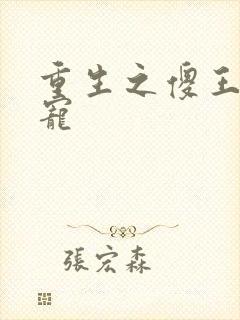 重生之傻王
寵
張宏森